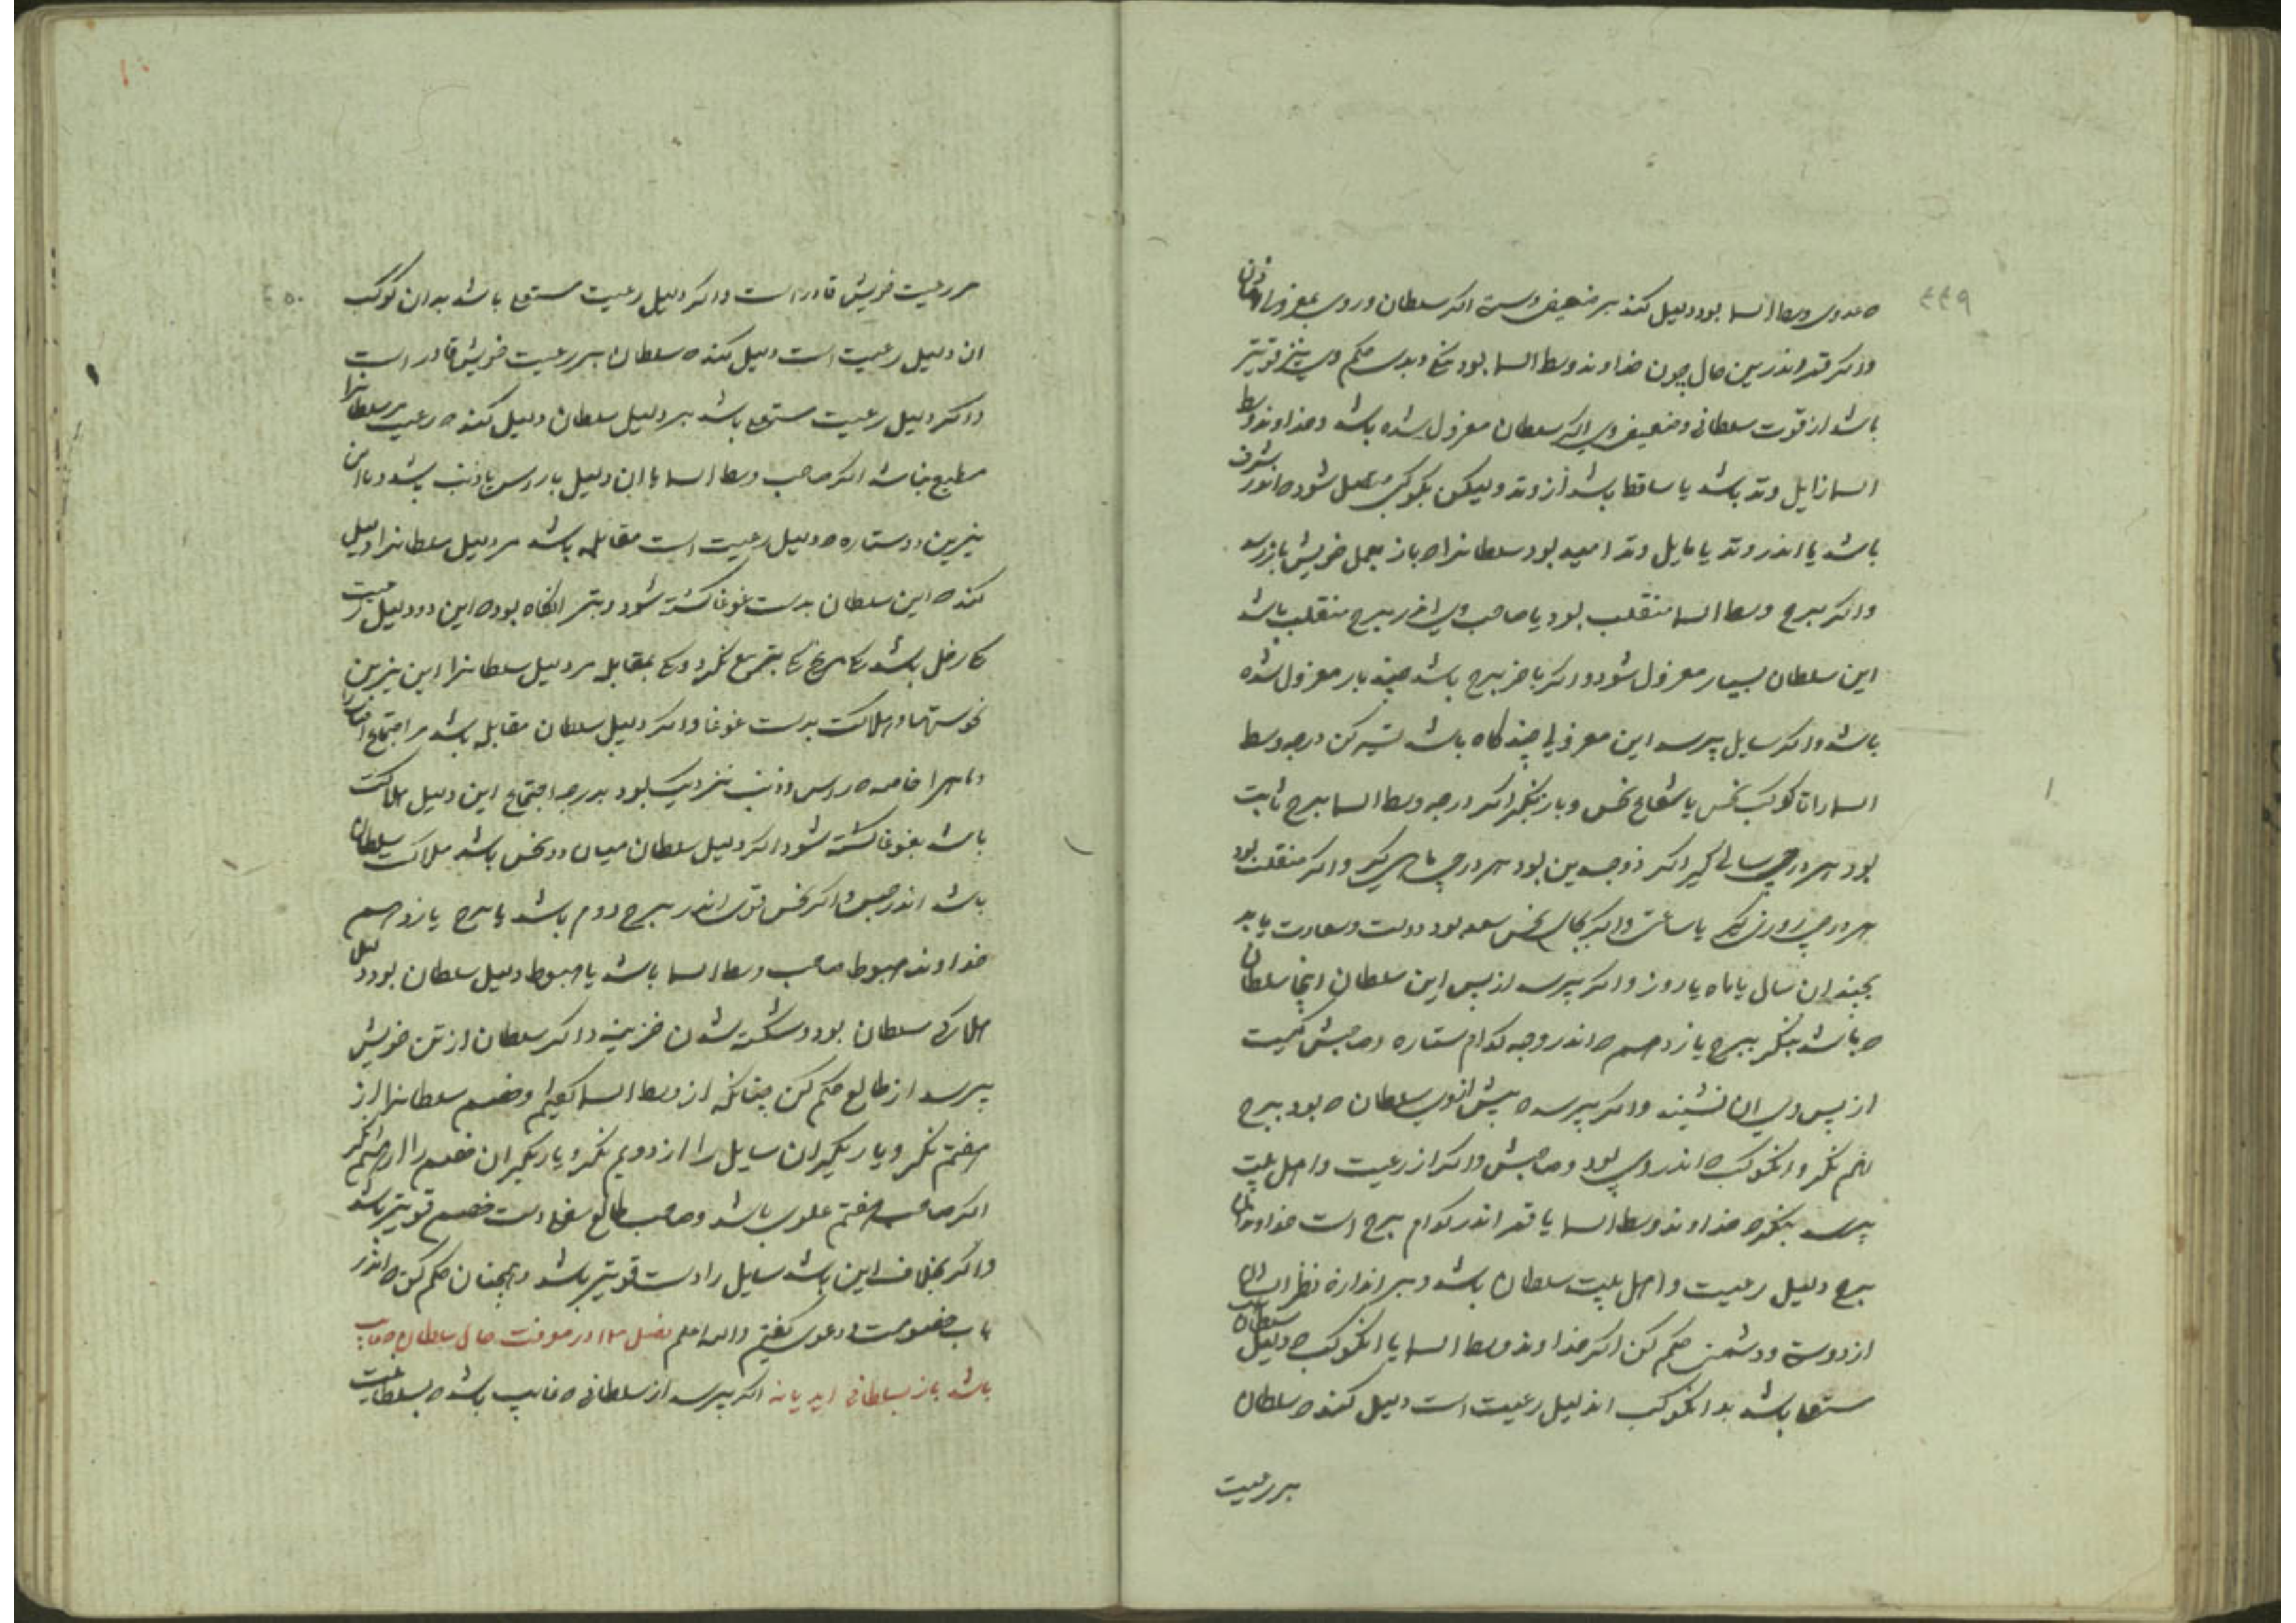 ۴۴۹
که عدوی وسط السما بود دلیل کند بر ضعیفی دست اگر سلطان و روی بمعزولی
واگر قمر اندرین حال چون خداوند وسط السما بود حکم وی نیز قویتر
باشد از قوت سلطانی و ضعیفی وی اگر سلطان معزول شده باشد و خداوند وسط
السما زایل وتد باشد یا ساقط باشد از وتد ولیکن بکوکبی متصل شود که اندر شرف
باشد یا اندر وتد یا مایل وتد امید بود سلطانرا که باز بعمل خویش باز رسد
واگر برج وسط السما منقلب بود یا صاحب وی اندر برج منقلب باشد
این سلطان بسیار معزول شود واگر باخر برج باشد چند بار معزول شده
باشد واگر سایل پرسد این معزولی چند کاه باشد تسیر کن درجه وسط
السما را تا کوکب نحس یا شعاع نحس و باز بنگر اگر درجه وسط السما ببرج ثابت
بود هر درجی سالی گیر اگر ذوجسدین بود هر درجی ماهی گیر واگر منقلب بود
هر درجی روزی گیر یا ساعتی واگر بجای نحس سعد بود دولت و سعادت یابد
بچندان سال یا ماه یا روز واگر پرسد از پس این سلطان اینجا سلطان
که باشد بنگر ببرج یازدهم که اندر وجه کدام ستاره و صاحبش کیست
از پس وی ان نشیند واگر پرسد که پیش ازوی سلطان که بود ببرج
نهم نگر وانکوکب که اندر وی بود و صاحبش واگر از رعیت و اهل بیت
پرسد بنگر که خداوند وسط السما یا قمر اندر کدام برج است خداوند ان
برج دلیل رعیت و اهل بیت سلطان باشد و بر اندازه نظر ایشان
از دوستی و دشمنی حکم کن اگر خداوند وسط السما یا انکوکب که دلیل سلطان است
مستعلی باشد بدانکوکب که دلیل رعیت است دلیل کند که سلطان
بر رعیت
۴۵۰
بر رعیت خویش قادر است واگر دلیل رعیت مستعلی باشد بدان کوکب
ان دلیل رعیت است دلیل کند که سلطان بر رعیت خویش قادر است
واگر دلیل رعیت مستعلی باشد بر دلیل سلطان دلیل کند که رعیت مر سلطانرا
مطیع نباشد اگر صاحب وسط السما با ان دلیل با راس یا ذنب باشد و با این
نیرین و ستاره که دلیل رعیت است مقابله باشد مر دلیل سلطانرا دلیل
کند که این سلطان بدست غوغا کشته شود و بتر انگاه بود که این دو دلیل رعیت
یکی زحل باشد یکی مریخ یکی بتربیع نگرد و یکی بمقابله مر دلیل سلطانرا این نیزین
نحوستها و هلاکت بدست غوغا واگر دلیل سلطان مقابله باشد مر اجتماع افتابرا
و ماهرا خاصه که راس و ذنب نزدیک بود بدرجه اجتماع این دلیل هلاکت
باشد بغوغا کشته شود اگر دلیل سلطان میان دو نحس باشد هلاک سلطان
باشد اندر حبس واگر نحس قوی اندر برج دوم باشد یا برج یازدهم
خداوند هبوط صاحب وسط السما باشد یا هبوط دلیل سلطان بود دلیل
هلاکی سلطان بود و شکسته شدن خزینه واگر سلطان از تن خویش
پرسد از طالع حکم کن چنانکه از وسط السما گفتیم و خصم سلطانرا از
هفتم نگر و یار یگیران سایل را از دویم نگر و یار یگیران خصم را از هشتم نگر
اگر صاحب هفتم علوی باشد و صاحب طالع سفلی است خصم قویتر باشد
واگر بخلاف این باشد سایل را دست قویتر باشد و همچنان حکم کن که اندر
باب خصومت و دعوی گفتیم والله اعلم فصل در معرفت حال سلطان که غایب
باشد باز بسلطانی اید یا نه اگر پرسد از سلطانی که غایب باشد که بسلطانیت